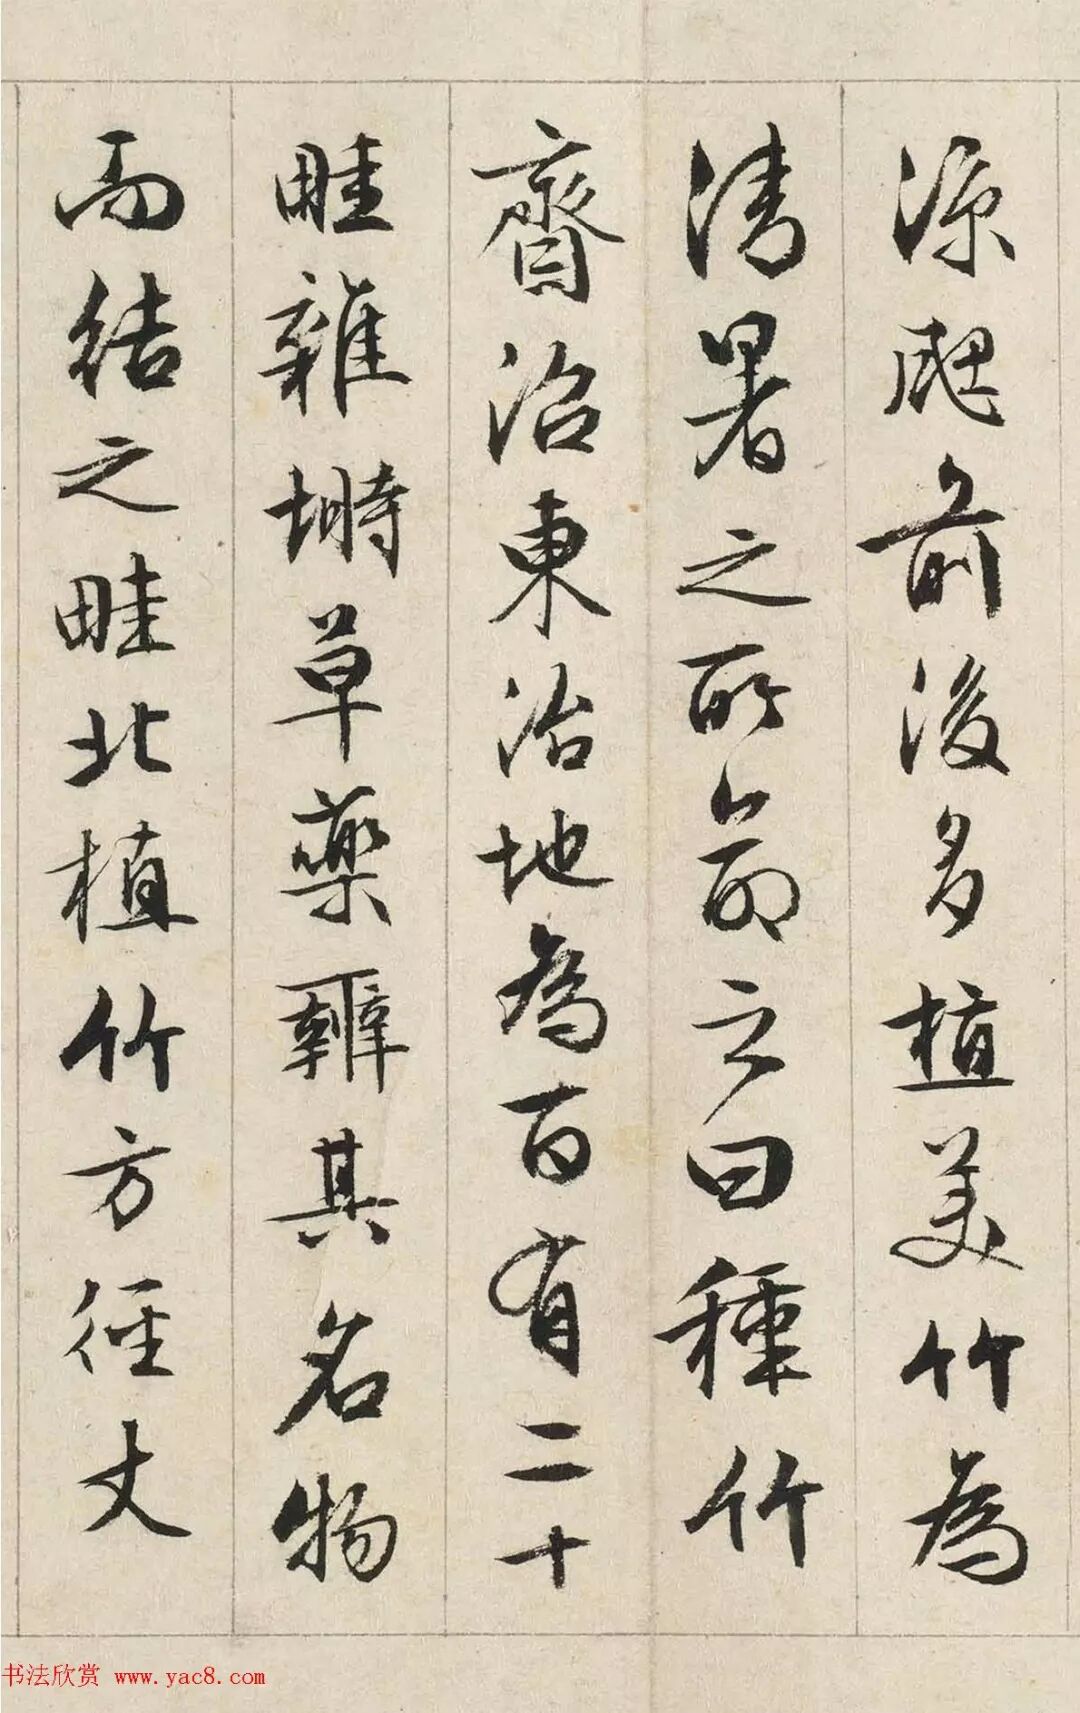 涼颸前後多植美竹為
清暑之所命之曰種竹
齋治東治地為百有二十
畦雜蒔草藥辯其名物
而結之畦北植竹方徑丈
书法欣赏 www.yac8.com